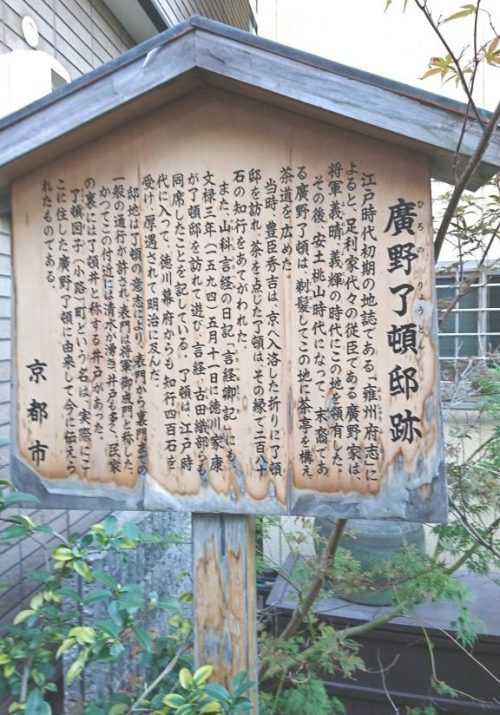 廣野了頓邸跡
ひろのりょうとんてい
江戸時代初期の地誌である、「雍州府志」に
よると、足利家代々の従臣である廣野家は、
将軍義晴、義輝の時代にこの地を領有した。
その後、安土桃山時代になって、末裔であ
る廣野了頓は、剃髪してこの地に茶亭を構え、
茶道を広めた。
当時、豊臣秀吉は、京へ入洛した折りに了頓
邸を訪れ、茶を点じた了頓は、その縁で二百八十
石の知行をあてがわれた。
また、山科言経の日記「言経卿記」にも、
文禄三年(一五九四)五月十一日に徳川家康
が了頓邸を訪れて遊び、言経、古田織部らも
同席したことを記している。了頓は、江戸時
代に入って、徳川幕府からも知行四百石を
受け、厚遇されて明治に及んだ。
邸地は了頓の意志により、表門から裏門までの
一般の通行が許され、表門は将軍御成門と称した。
かつてこの付近には清水が湧き、井戸も多く、民家
の裏には了頓井と称する井戸があった。
了頓図子(小路)町という名は、実際にこ
こに住した廣野了頓に由来して今に伝えら
れたものである。
京都市